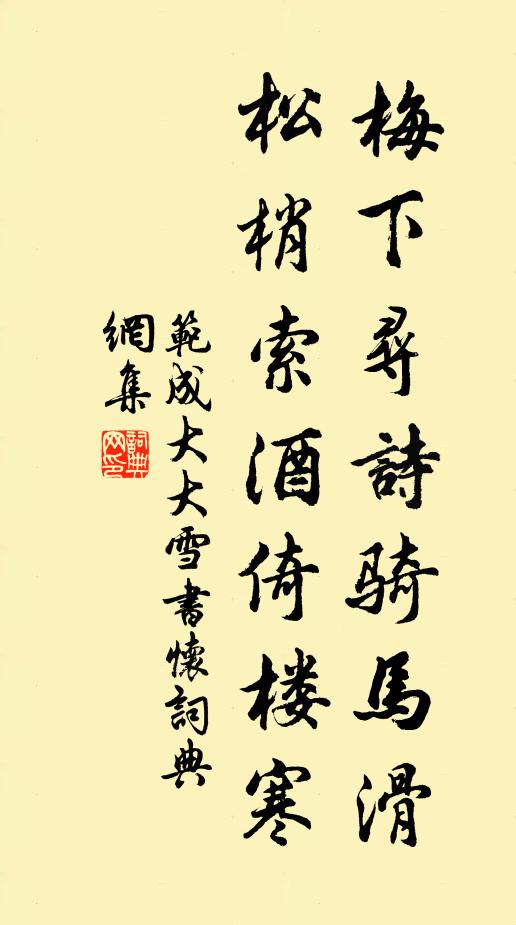 梅下尋詩骑馬滑
松梢索酒倚楼寒
範成大大雪書懷詞典
網集
詞典网印